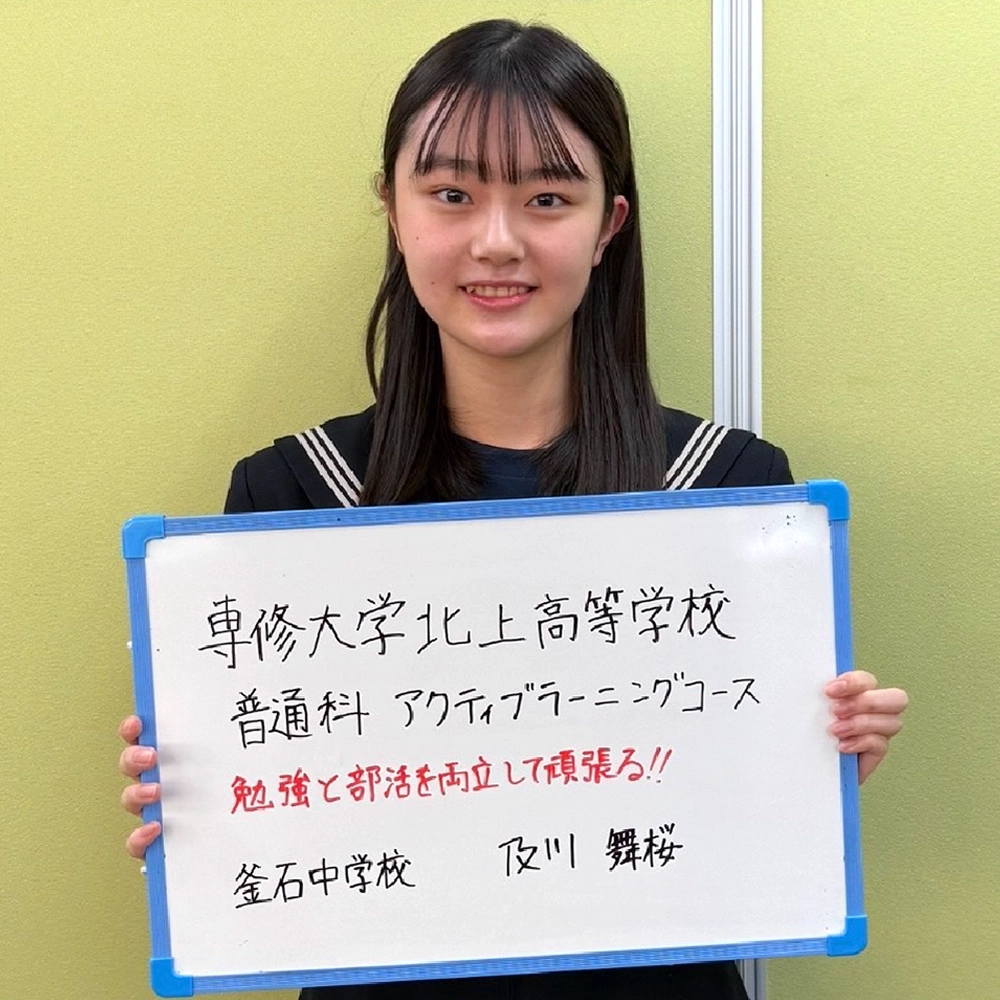 専修大学北上高等学校
普通科 アクティブラーニングコース
勉強と部活を両立して頑張る!!
釜石中学校 及川 舞桜